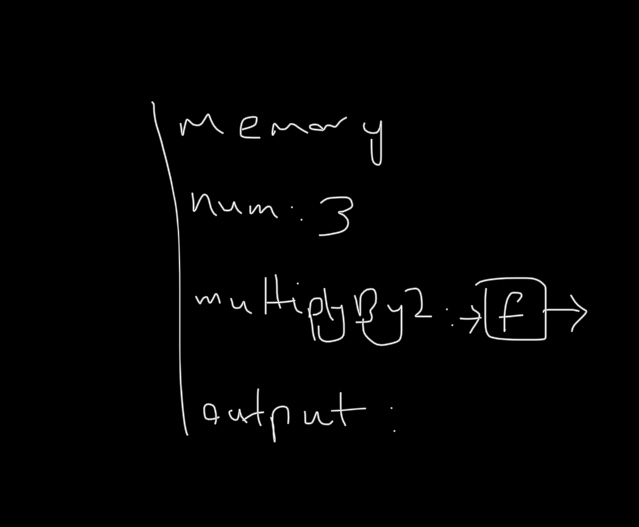 Memory
num: 3
multiplyBy2: →[f]→
output: